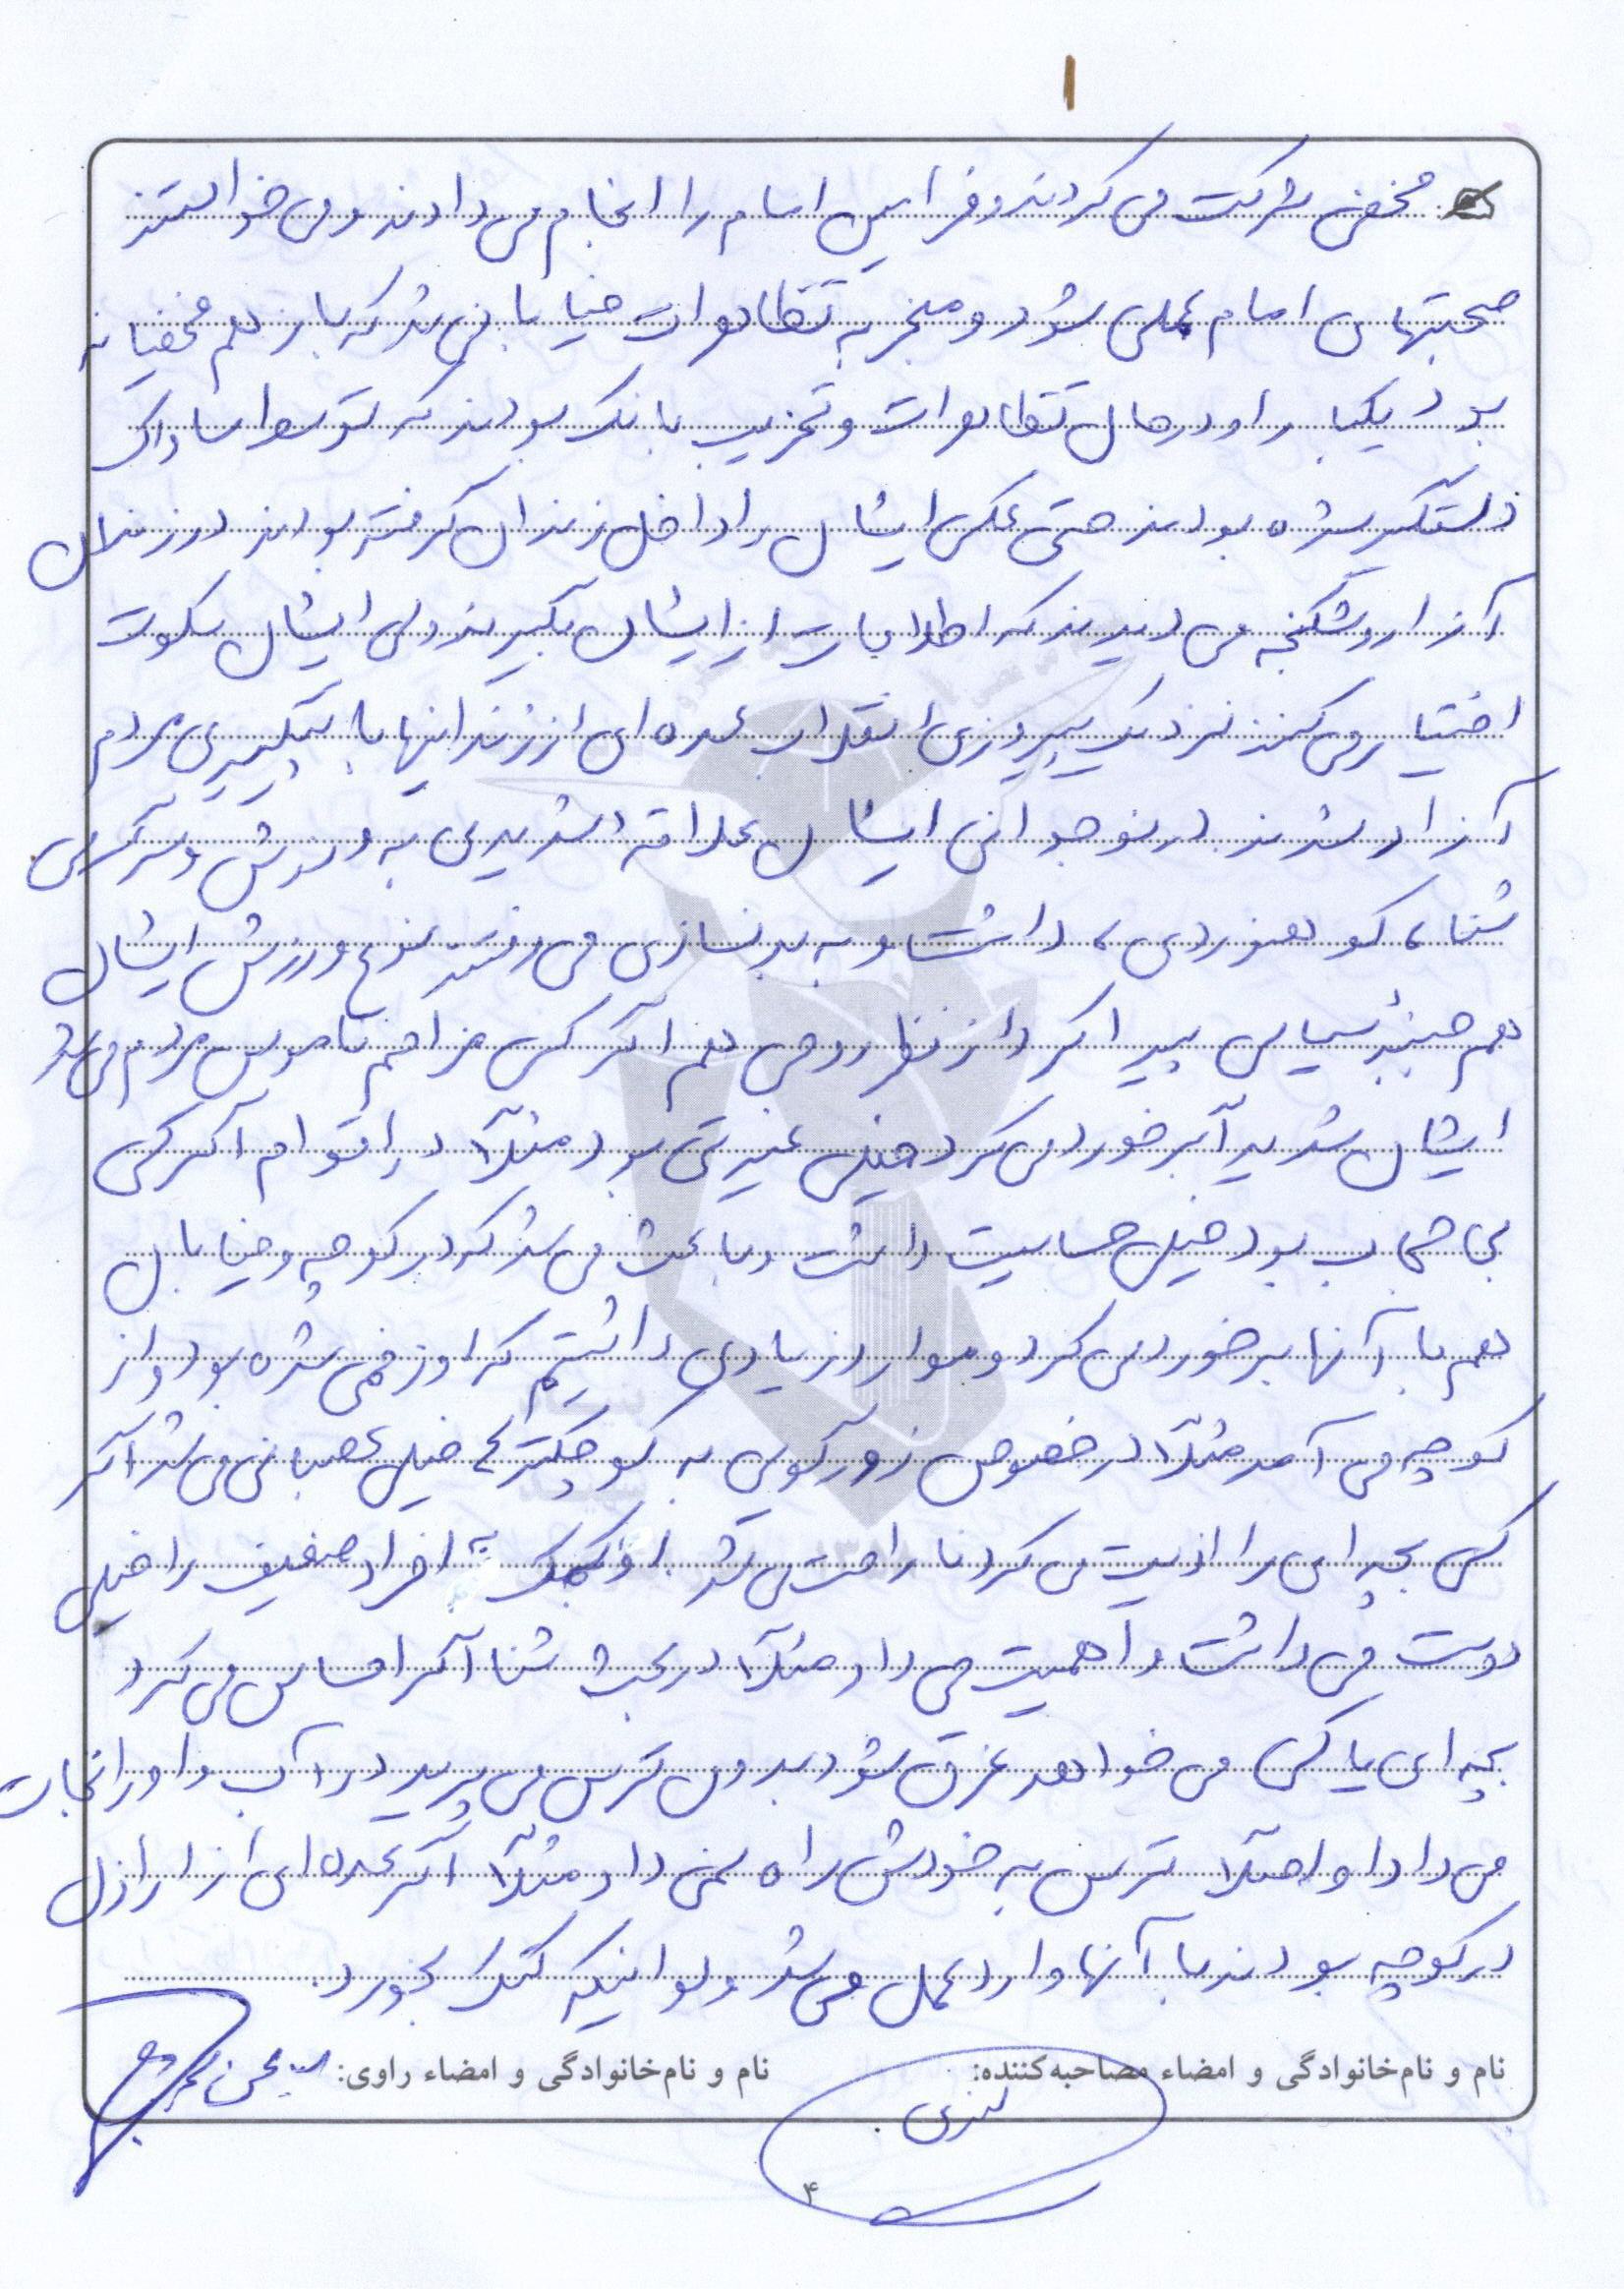 مخفی شرکت می کردند و فرامین امام را انجام می دادند و می خواستند
صحبتهای امام عملی شود و منجر به تظاهرات خیابانی شد که باز هم مخفیانه
بود یکبار او در حال تظاهرات و تخریب بانک بودند که توسط ساواک
دستگیر شده بودند حتی عکس ایشان را داخل زندان گرفته بودند در زندان
آزار و شکنجه می دیدند که اطلاعات از ایشان بگیرند ولی ایشان سکوت
اختیار می کنند نزدیک پیروزی انقلاب عده ای از زندانیها با پیگیری مردم
آزاد شدند در نوجوانی ایشان علاقه شدیدی به ورزش و سرگرمی
شنا، کوهنوردی، داشت و به بدنسازی می رفتند نوع ورزش ایشان
هم جنبه سیاسی پیدا کرد از نظر روحی هم اگر کسی مزاحم ناموس مردم می شد
ایشان شدیداً برخورد می کرد خیلی غیرتی بود مثلاً در اقوام اگر کسی
بی حجاب بود خیلی حساسیت داشت و باعث می شد که در کوچه و خیابان
هم با آنها برخورد می کرد و موارد زیادی داشتیم که او زخمی شده بود و از
کوچه می آمد مثلاً در خصوص زورگویی به کوچکترها خیلی عصبانی می شد اگر
کسی بچه ای را اذیت می کرد ناراحت می شد. او کمک به افراد ضعیف را خیلی
دوست می داشت و اهمیت می داد مثلاً در بحث شنا اگر احساس می کرد
بچه ای یا کسی می خواهد غرق شود بدون ترس می پرید در آب و او را نجات
می داد او اصلاً ترس به خودش راه نمی داد مثلاً اگر عده ای از اراذل
در کوچه بودند با آنها وارد عمل می شد ولو اینکه کتک بخورد.
نام و نام‌خانوادگی و امضاء مصاحبه‌کننده: نام و نام‌خانوادگی و امضاء راوی:
۴